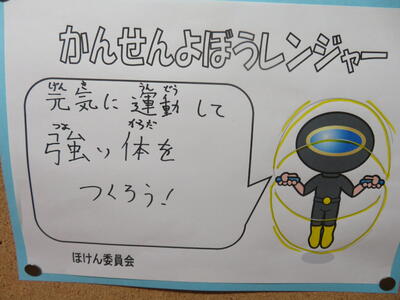 かんせんよぼうレンジャー
げん き うん どう
元気に運動して
つよ からだ
強い体を
つくろう!
ほけん委員会